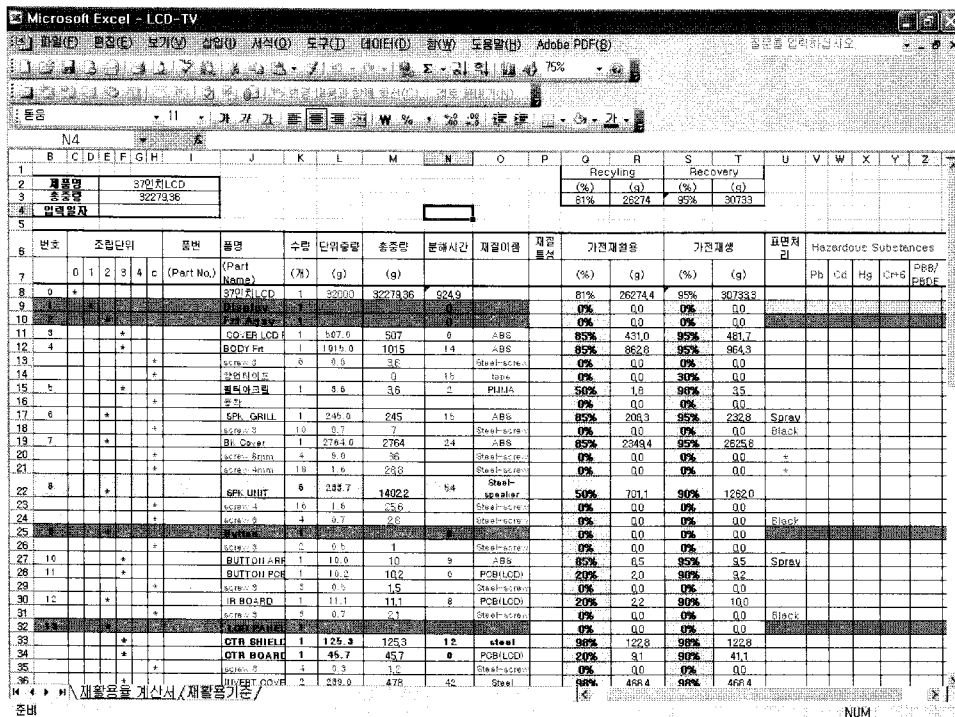 Microsoft Excel - LCD-TV
파일(F) 편집(E) 보기(V) 삽입(I) 서식(O) 도구(T) 데이터(D) 창(W) 도움말(H) Adobe PDF(B)
75%
돋움 11
N4
B C D E F G H I J K L M N O P Q R S T U V W X Y Z
1 Recyling Recovery
2 제품명 37인치LCD (%) (g) (%) (g)
3 총중량 32279,36 81% 26274 95% 30733
4 입력일자
5
6 번호 조립단위 품번 품명 수량 단위중량 총중량 분해시간 재질이름 재질특성 가전재활용 가전재생 표면처리 Hazardous Substances
7 0 1 2 3 4 c (Part No.) (Part Name) (개) (g) (g) (%) (g) (%) (g) Pb Cd Hg Cr+6 PBB/PBDE
8 0 * 37인치LCD 1 32000 32279,36 924,9 81% 26274,4 95% 30733,3
9 0% 0,0 0% 0,0
10 0% 0,0 0% 0,0
11 3 * COVER LCD F 1 507.0 507 0 ABS 85% 431,0 95% 481,7
12 4 * BODY Frt 1 1015.0 1015 14 ABS 85% 862,8 95% 964,3
13 * screw 3 6 0.6 3,6 Steel-screw 0% 0,0 0% 0,0
14 * 양면테이프 0 15 tape 0% 0,0 30% 0,0
15 5 * 필터아크릴 1 3.6 3,6 2 PMMA 50% 1,8 98% 3,5
16 * 0% 0,0 0% 0,0
17 6 * SPK GRILL 1 245.0 245 15 ABS 85% 208,3 95% 232,8 Spray
18 * screw 3 10 0.7 7 Steel-screw 0% 0,0 0% 0,0 Black
19 7 * BK Cover 1 2764.0 2764 24 ABS 85% 2349,4 95% 2625,8
20 * screw 8mm 4 9.0 36 Steel-screw 0% 0,0 0% 0,0 *
21 * screw 4mm 18 1.6 28,8 Steel-screw 0% 0,0 0% 0,0 *
22 8 * SPK UNIT 6 233.7 1402,2 54 Steel-speaker 50% 701,1 90% 1262,0
23 * screw 4 16 1.6 25,6 Steel-screw 0% 0,0 0% 0,0
24 * screw 3 4 0.7 2,8 Steel-screw 0% 0,0 0% 0,0 Black
25 Button 0% 0,0 0% 0,0
26 * screw 3 2 0.5 1 Steel-screw 0% 0,0 0% 0,0
27 10 * BUTTON ARR 1 10.0 10 9 ABS 85% 8,5 95% 9,5 Spray
28 11 * BUTTON PCB 1 10.2 10,2 0 PCB(LCD) 20% 2,0 90% 9,2
29 * screw 3 3 0.5 1,5 Steel-screw 0% 0,0 0% 0,0
30 12 * IR BOARD 1 11.1 11,1 8 PCB(LCD) 20% 2,2 90% 10,0
31 * screw 3 3 0.7 2,1 Steel-screw 0% 0,0 0% 0,0 Black
32 LCD PANEL 0% 0,0 0% 0,0
33 * CTR SHIELD 1 125.3 125,3 12 steel 98% 122,8 98% 122,8
34 * CTR BOARD 1 45.7 45,7 0 PCB(LCD) 20% 9,1 90% 41,1
35 * screw 3 4 0.3 1,2 Steel-screw 0% 0,0 0% 0,0
36 * INVERT COVE 2 239.0 478 42 Steel 98% 468,4 98% 468,4
재활용율 계산서 / 재활용기준
준비 NUM